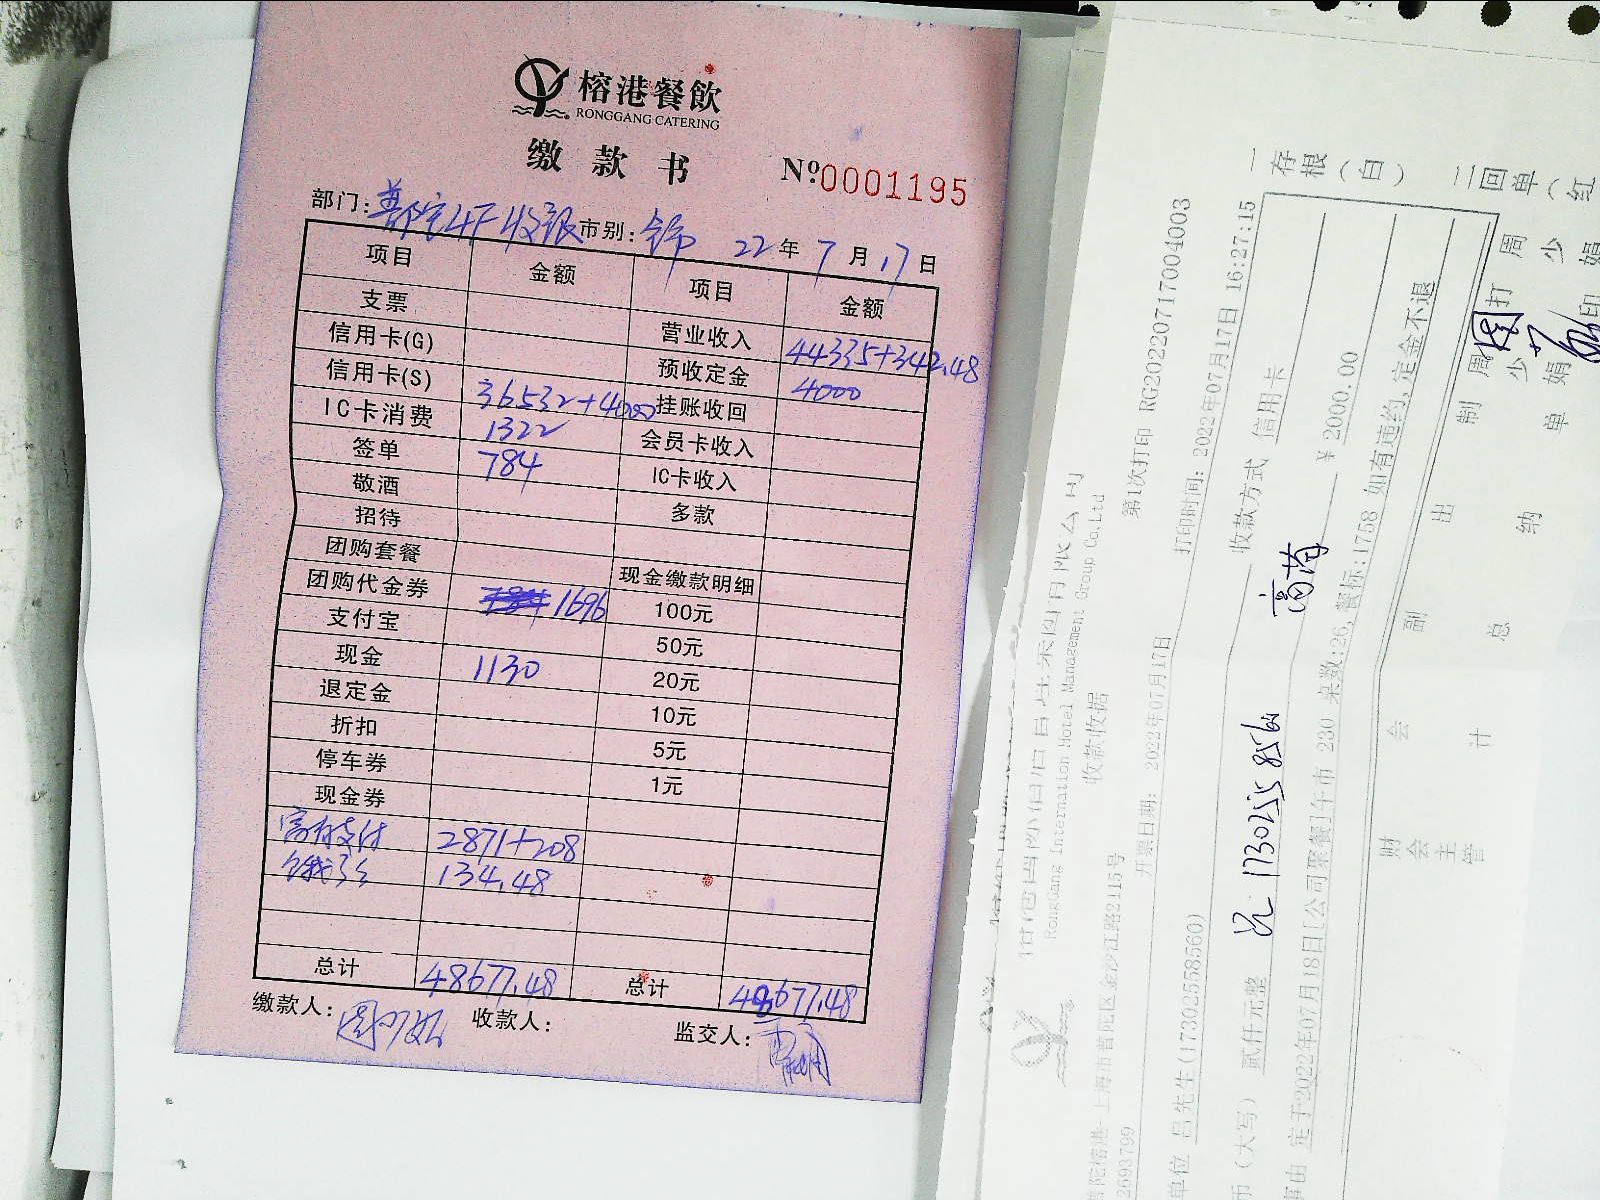 榕港餐飲
RONGGANG CATERING
缴款书
Nº0001195
部门:普陀店4F收银 市别: 22年7月17日
项目 金额 项目 金额
支票 营业收入 44335+342.48
信用卡(G) 预收定金 4000
信用卡(S) 36532+4000 挂账收回
IC卡消费 1322 会员卡收入
签单 784 IC卡收入
敬酒 多款
招待
团购套餐 现金缴款明细
团购代金券 1696 100元
支付宝 50元
现金 1130 20元
退定金 10元
折扣 5元
停车券 1元
现金券
2871+208
饿了么 134.48
总计 48677.48 总计 48677.48
缴款人: 收款人: 监交人:
RongGang International Hotel Management Group Co.Ltd
收款收据
第1次打印 RG20220717004003
打印时间: 2022年07月17日 16:27:15
普陀榕港-上海市普陀区金沙江路2115号
2693799
开票日期: 2022年07月17日
单位 吕先生(17302558560) 17302558560 收款方式 信用卡
币(大写) 贰仟元整 ￥ 2000.00
事由 定于2022年07月18日[公司聚餐]午市 230 桌数:26, 餐标:1758 如有违约,定金不退
财会主管 会计 副总 出纳 制单 周少娟
打印 周少娟
一存根(白) 二回单(红